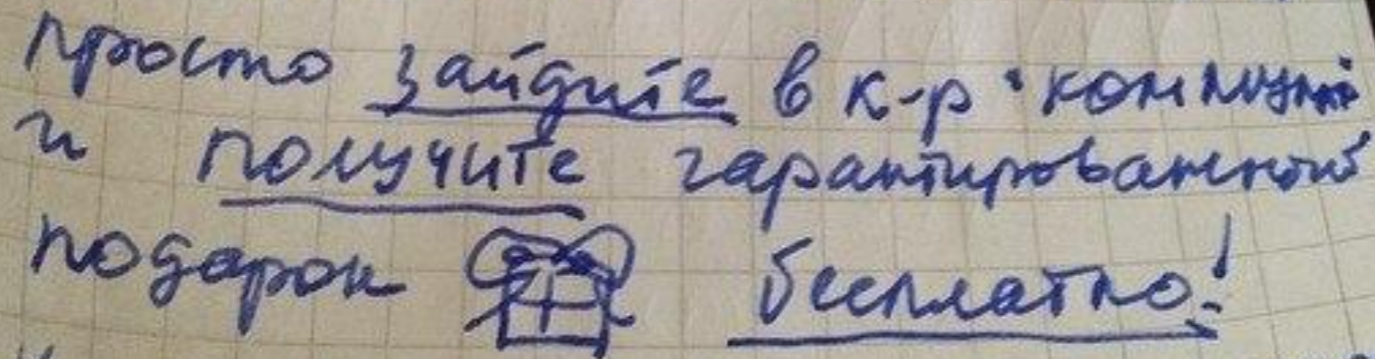 просто зайдите в к-р
и получите гарантированный
подарок бесплатно!